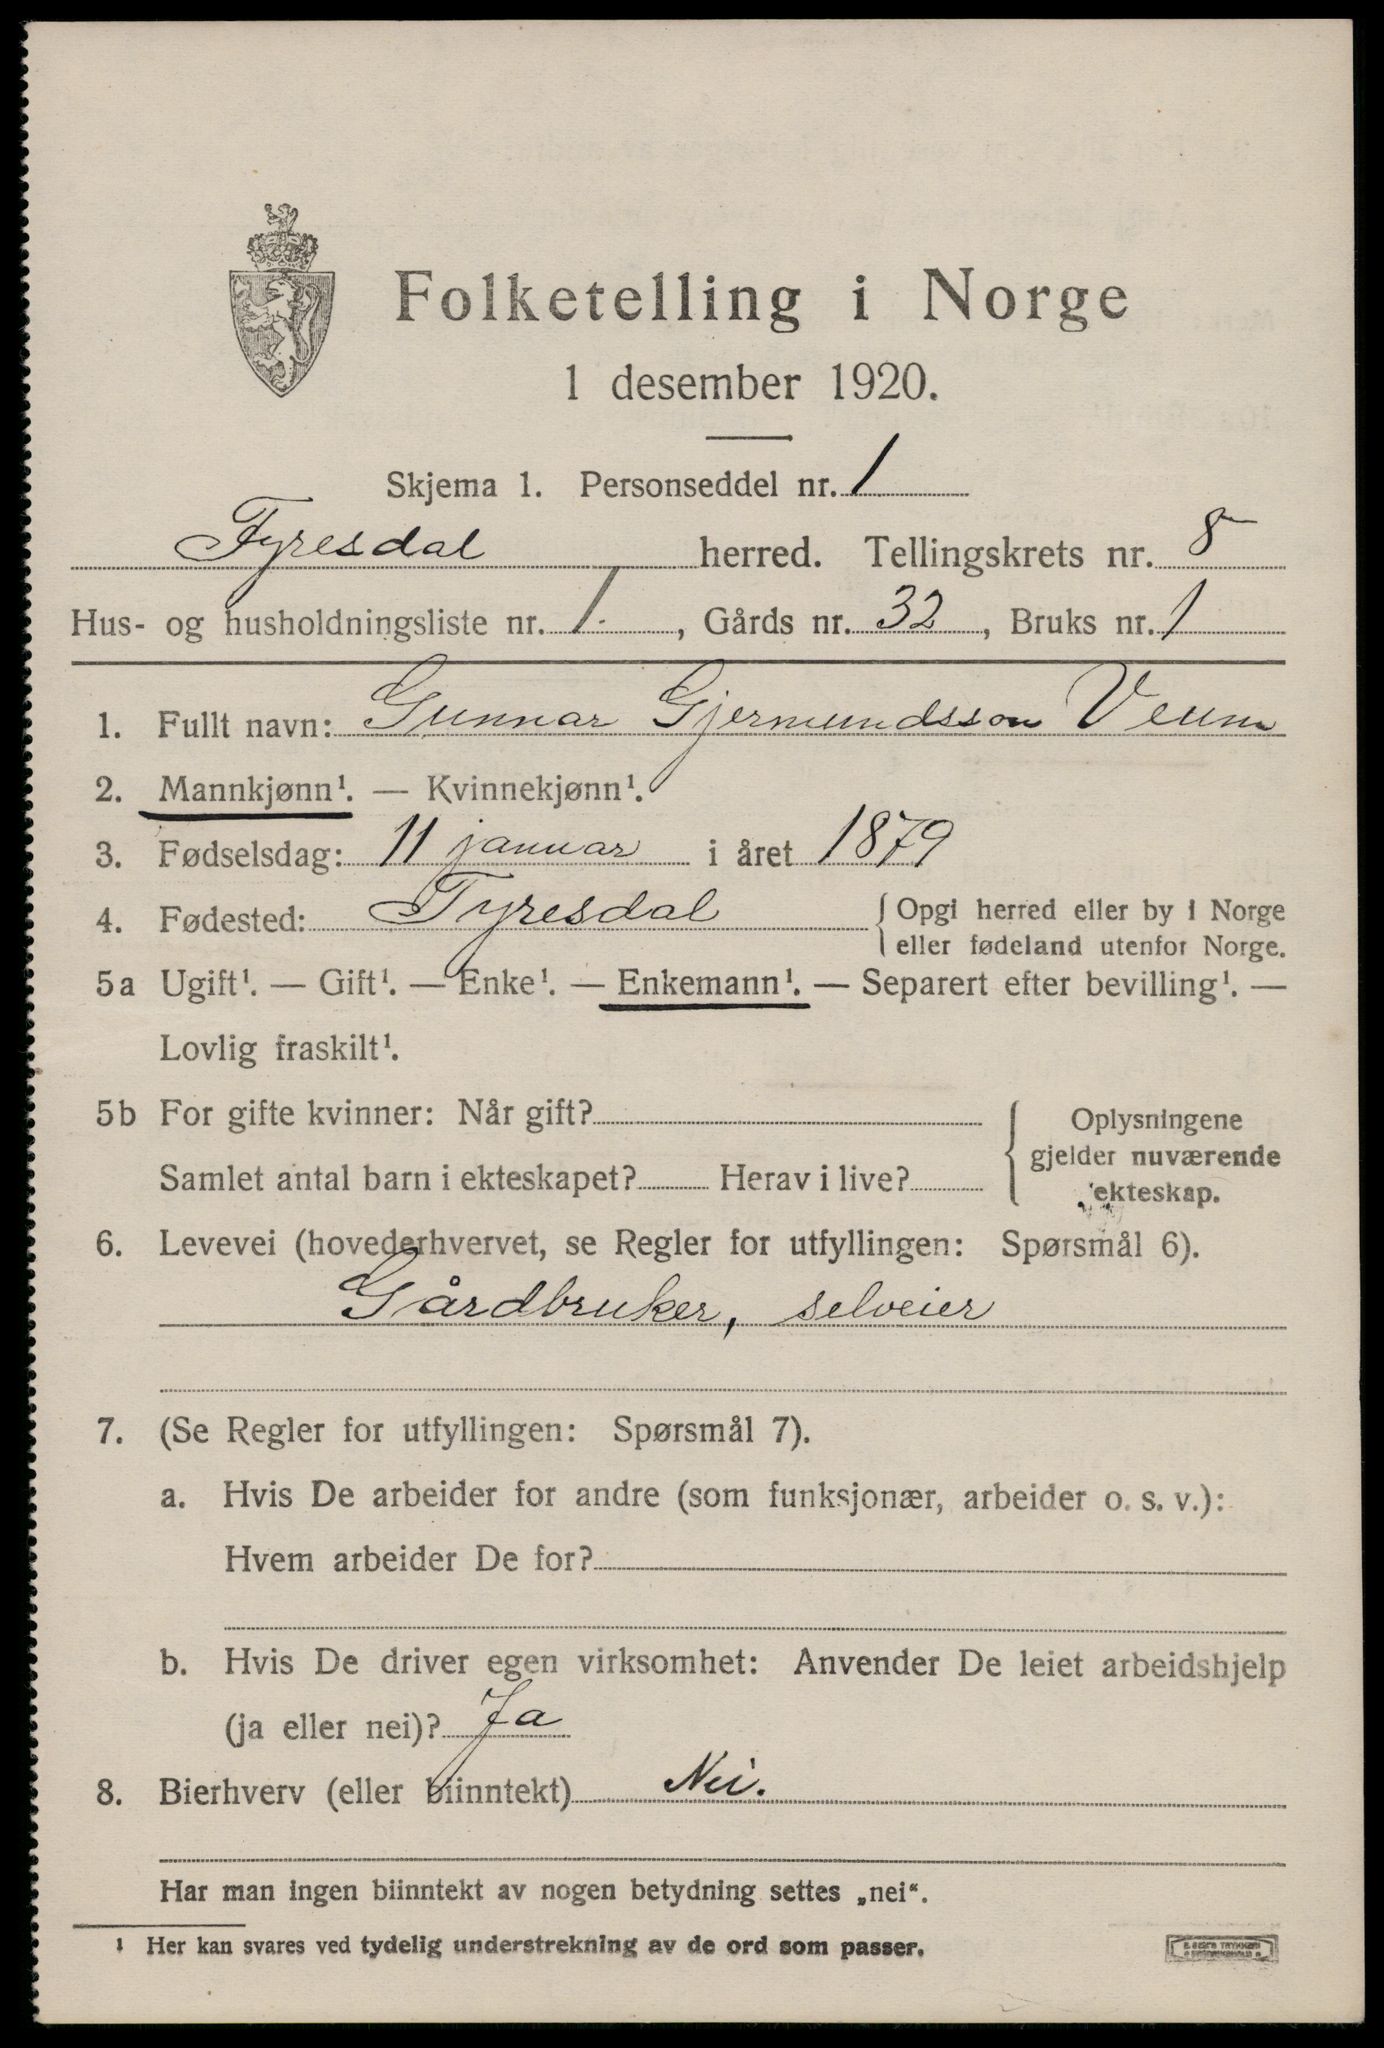 Folketelling i Norge
1 desember 1920.
Skjema 1. Personseddel nr. 1
Fyresdal herred. Tellingskrets nr. 8
Hus- og husholdningsliste nr. 1., Gårds nr. 32, Bruks nr. 1
1. Fullt navn: Gunnar Gjermundsson Veum
2. Mannkjønn¹. — Kvinnekjønn¹.
3. Fødselsdag: 11 januar i året 1879
4. Fødested: Fyresdal { Opgi herred eller by i Norge
eller fødeland utenfor Norge.
5a Ugift¹. — Gift¹. — Enke¹. — Enkemann¹. — Separert efter bevilling¹. —
Lovlig fraskilt¹.
5b For gifte kvinner: Når gift?
Samlet antal barn i ekteskapet? Herav i live?
Oplysningene
gjelder nuværende
ekteskap.
6. Levevei (hovederhvervet, se Regler for utfyllingen: Spørsmål 6).
Gårdbruker, selveier
7. (Se Regler for utfyllingen: Spørsmål 7).
a. Hvis De arbeider for andre (som funksjonær, arbeider o. s. v.):
Hvem arbeider De for?
b. Hvis De driver egen virksomhet: Anvender De leiet arbeidshjelp
(ja eller nei)? Ja
8. Bierhverv (eller biinntekt) Nei.
Har man ingen biinntekt av nogen betydning settes „nei“.
¹ Her kan svares ved tydelig understrekning av de ord som passer.